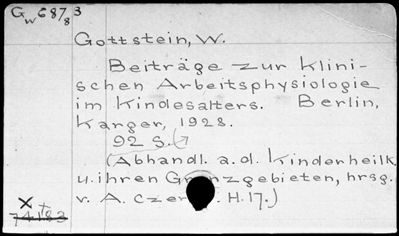 Gw 687/8 3
Gottstein, W.
Beiträge zur klini-
schen Arbeitsphysiologie
im Kindesalters. Berlin,
Karger, 1928.
92 S.
(Abhandl. a. d. Kinderheilk.
u. ihren Grenzgebieten, hrsg.
v. A. H. 17.)
X +
74183